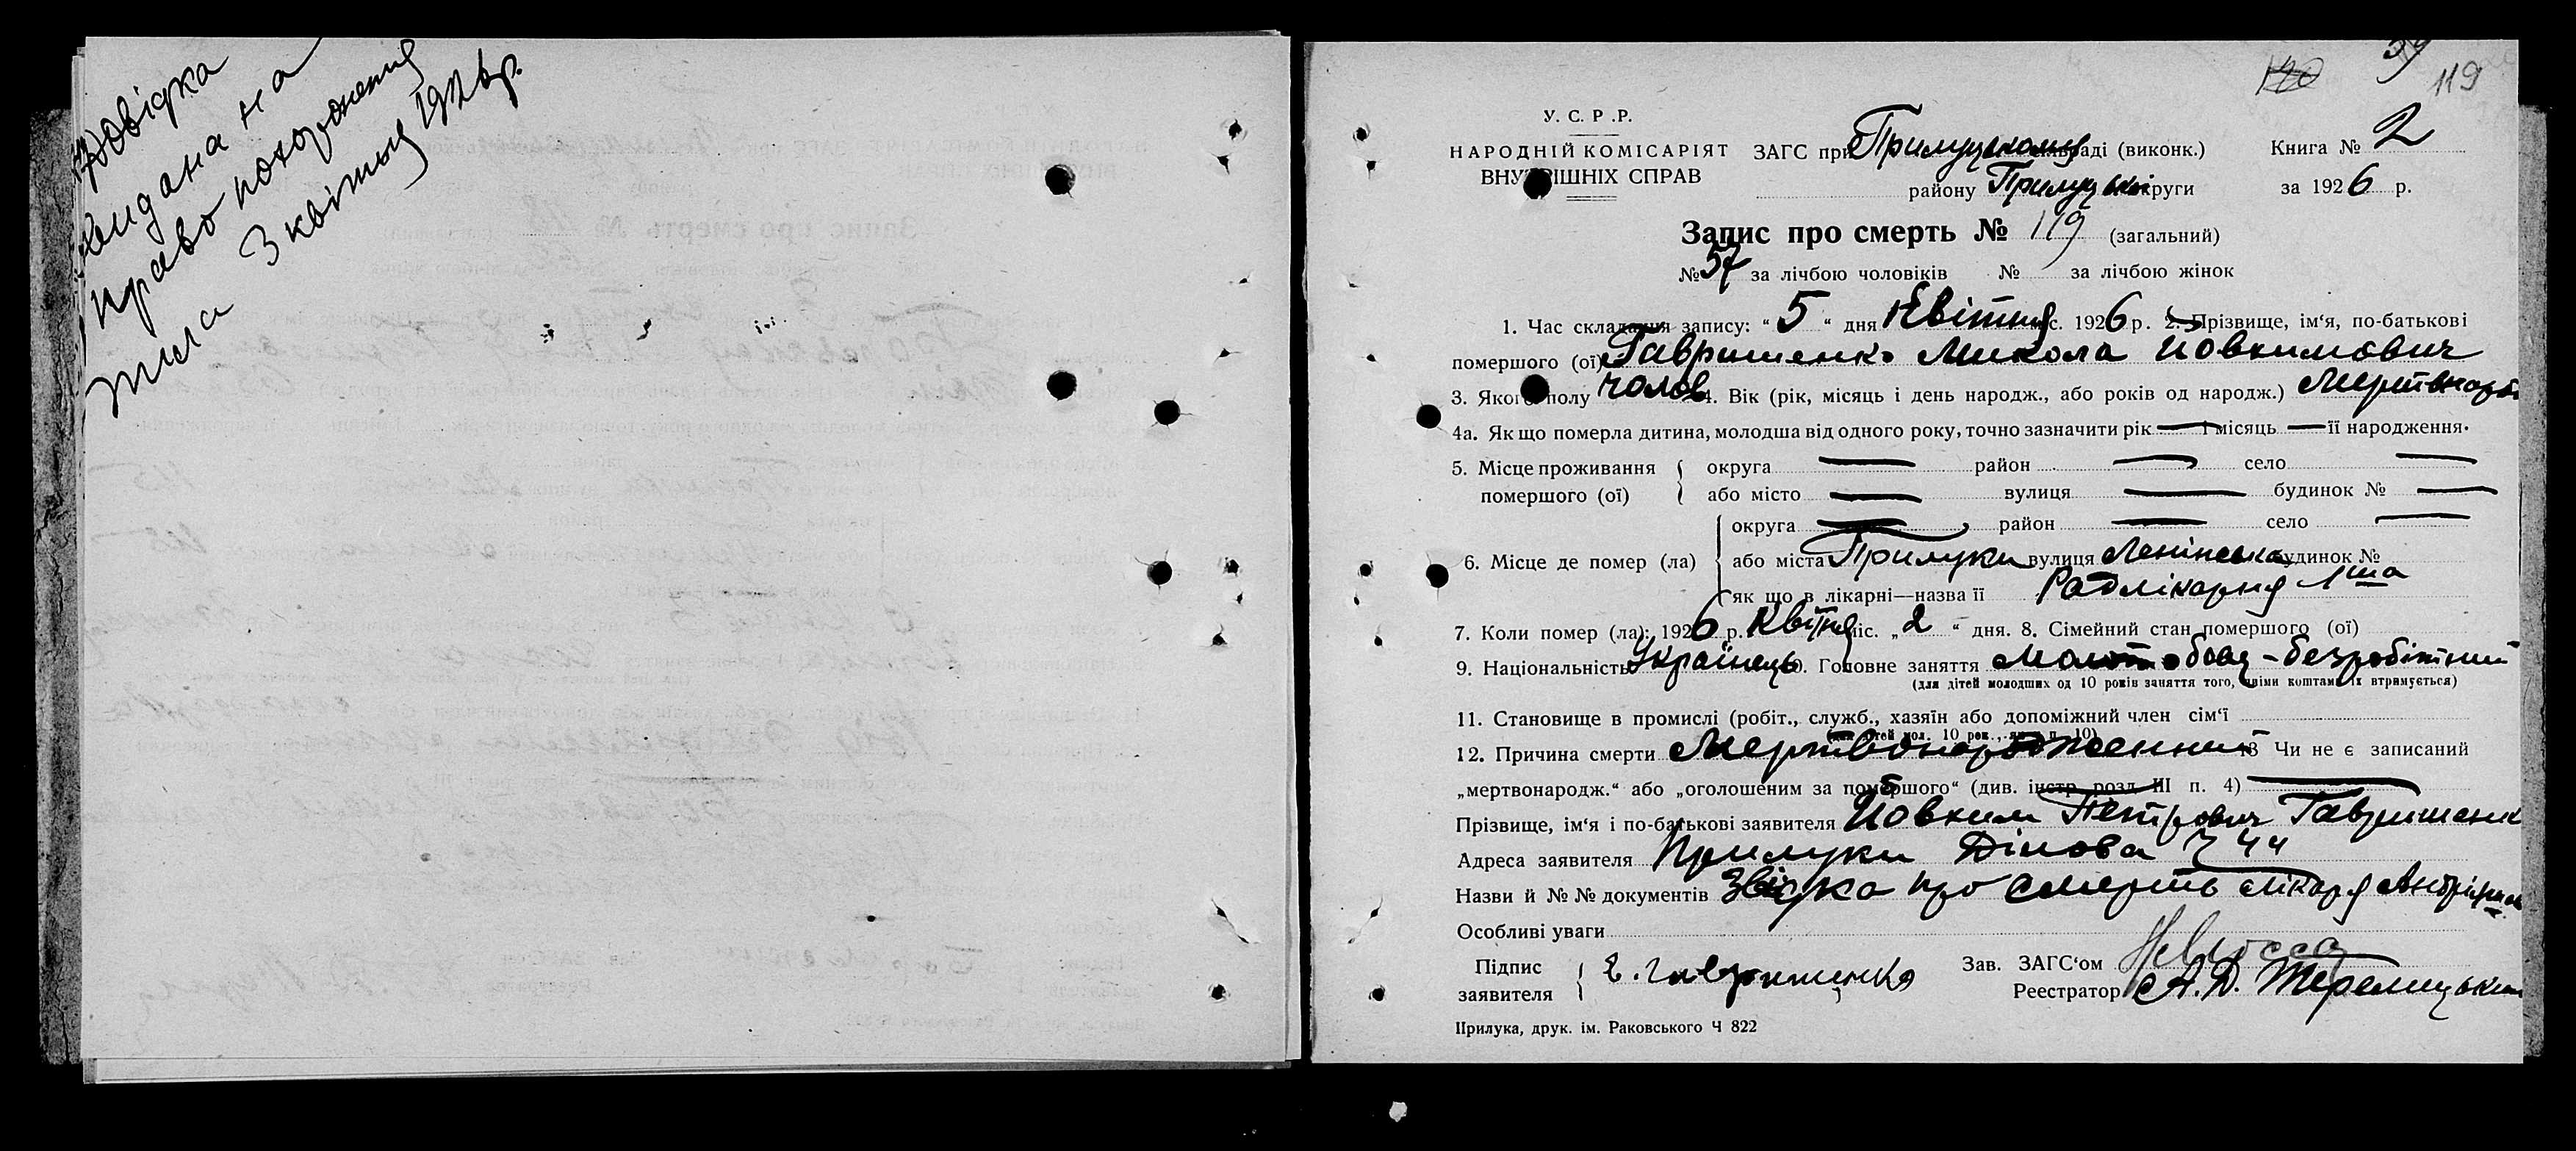 Довідка
видана на
право похоронення
тила 3 квітня 1926 р.
119
У. С. Р .Р.
НАРОДНІЙ КОМІСАРІЯТ
ВНУТРІШНІХ СПРАВ
ЗАГС при Прилуцькому раді (виконк.)
району Прилуцькі округи
Книга № 2
за 1926 р.
Запис про смерть № 119 (загальний)
№ 57 за лічбою чоловіків № за лічбою жінок
1. Час складання запису: “ 5 “ дня Квітня с. 1926 р. 2. Прізвище, ім‘я, по-батькові
помершого (ої) Гавришенко Микола Йовкимович
3. Якого полу чолов 4. Вік (рік, місяць і день народж., або років од народж.) Мертвнаро
4а. Як що померла дитина, молодша від одного року, точно зазначити рік — і місяць — її народження.
5. Місце проживання помершого (ої) округа — район — село —
або місто — вулиця — будинок № —
6. Місце де помер (ла) округа — район — село —
або міста Прилуки вулиця Ленінська будинок №
як що в лікарні—назва її Радлікарня 1ша
7. Коли помер (ла): 1926 р. Квітня міс. „ 2 “ дня. 8. Сімейний стан помершого (ої)
9. Національність Українець 10. Головне заняття безробітний
(для дітей молодших од 10 років заняття того, чиїми коштами їх втримується)
11. Становище в промислі (робіт., служб., хазяїн або допоміжний член сім‘ї
(для дітей мол. 10 рок., як в п. 10)
12. Причина смерти Мертвонароженний 13 Чи не є записаний
„мертвонародж.“ або „оголошеним за помершого“ (див. інстр. розд. III п. 4) —
Прізвище, ім‘я і по-батькові заявителя Йовким Петрович Гавришенк
Адреса заявителя Прилуки 44
Назви й №№ документів Звідка про смерть лікаря
Особливі уваги
Підпис заявителя Є. Гавришенко
Зав. ЗАГС‘ом
Реестратор А. Д.
Прилука, друк. ім. Раковського Ч 822